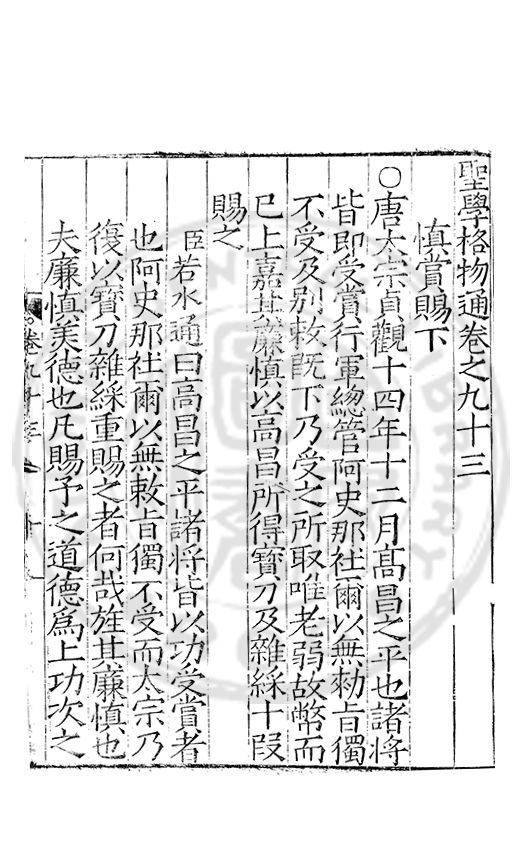 聖學格物通卷之九十三
慎賞賜下
〇唐太宗貞觀十四年十二月髙昌之平也諸將
皆即受賞行軍總管阿史那社爾以無勑㫖獨
不受及别敕既下乃受之所取唯老弱故幣而
已上嘉其廉慎以高昌所得寳刀及雜綵十段
賜之
臣若水通曰高昌之平諸將皆以功受賞者
也阿史那社爾以無敕㫖獨不受而太宗乃
復以寳刀雜綵重賜之者何哉旌其廉慎也
夫廉慎美德也凡賜予之道德爲上功次之